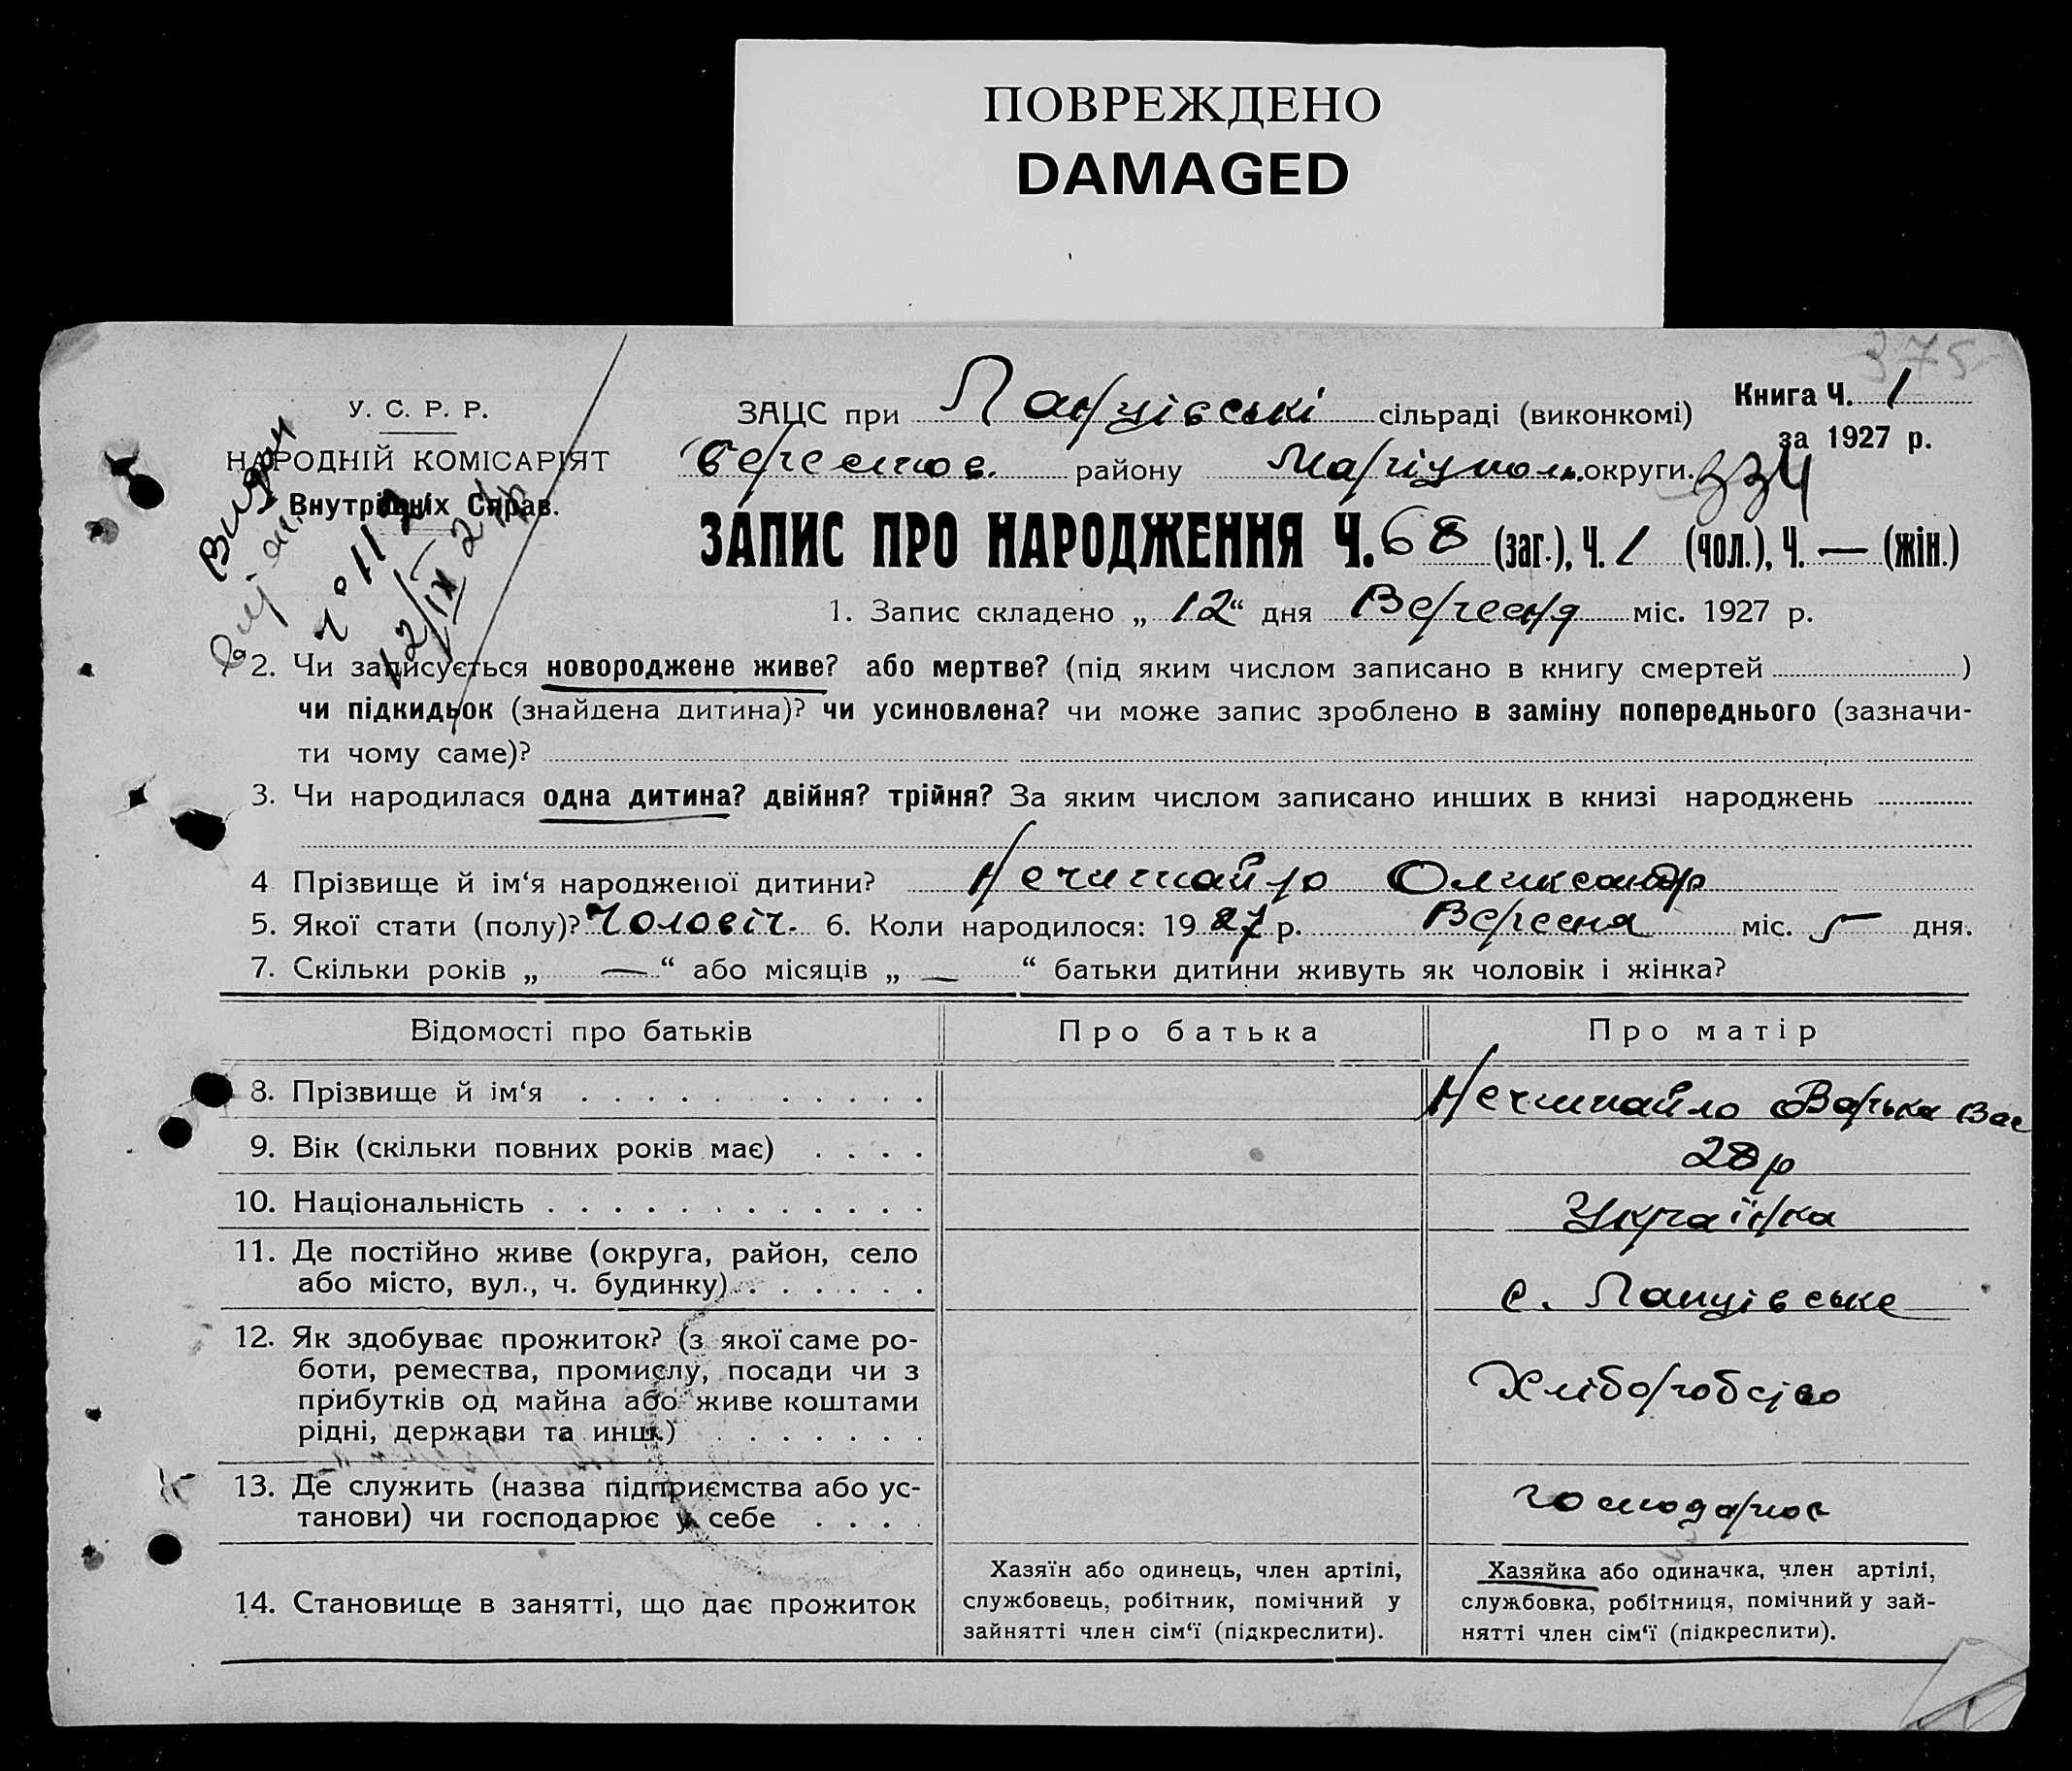 ПОВРЕЖДЕНО
DAMAGED
375
У. С. Р. Р.
НАРОДНІЙ КОМІСАРІЯТ
Внутрішніх Справ.
Видан
12/IX 27р
ЗАЦС при Ланцівські сільраді (виконкомі)
Книга Ч. 1
за 1927 р.
району Маріупол. округи.
334
ЗАПИС ПРО НАРОДЖЕННЯ Ч. 68 (заг.), Ч. 1 (чол.), Ч. — (жін.)
1. Запис складено „ 12 “ дня Вересня міс. 1927 р.
2. Чи записується новороджене живе? або мертве? (під яким числом записано в книгу смертей )
чи підкидьок (знайдена дитина)? чи усиновлена? чи може запис зроблено в заміну попереднього (зазначи-
ти чому саме)?
3. Чи народилася одна дитина? двійня? трійня? За яким числом записано инших в книзі народжень
4 Прізвище й ім‘я народженої дитини? Нечипайло Олександр
5. Якої стати (полу)? Чоловіч. 6. Коли народилося: 1927 р. Вересня міс. 5 дня.
7. Скільки років „ — “ або місяців „ — “ батьки дитини живуть як чоловік і жінка?
Відомості про батьків Про батька Про матір
8. Прізвище й ім‘я . . . . . . . . . . . Нечипайло Варька Вас
9. Вік (скільки повних років має) . . . . 28 р
10. Національність . . . . . . . . . . . . . Українка
11. Де постійно живе (округа, район, село
або місто, вул., ч. будинку) . . . . . . с. Ланцівське
12. Як здобуває прожиток? (з якої саме ро-
боти, ремества, промислу, посади чи з
прибутків од майна або живе коштами
рідні, держави та инш.) . . . . . . . Хліборобство
13. Де служить (назва підприємства або ус-
танови) чи господарює у себе . . . . господарює
14. Становище в занятті, що дає прожиток
Хазяїн або одинець, член артілі,
службовець, робітник, помічний у
зайнятті член сім‘ї (підкреслити).
Хазяйка або одиначка, член артілі,
службовка, робітниця, помічний у зай-
нятті член сім‘ї (підкреслити).